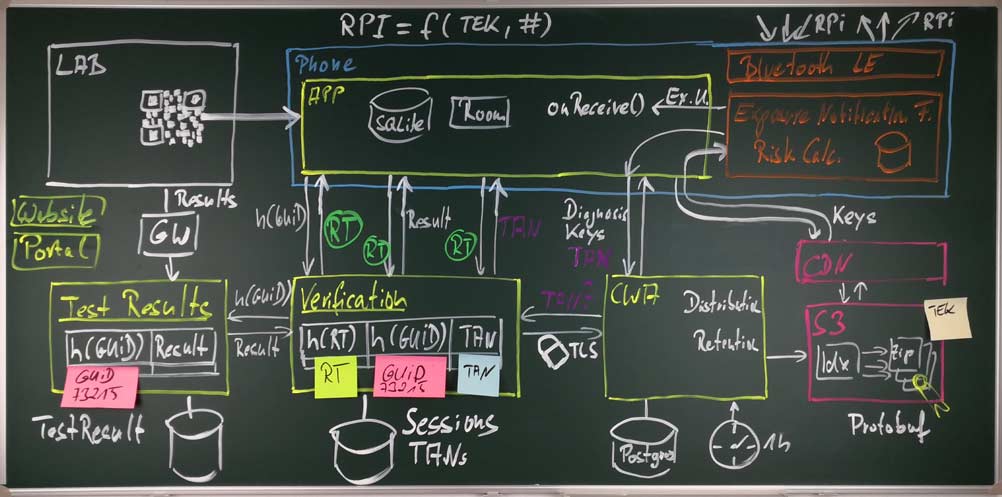 RPI = f( TEK, #)
RPi
RPi
LAB
Phone
Bluetooth LE
APP
SQLite
Room
onReceive()
Ex.U.
Exposure Notification F.
Risk Calc.
Results
Website
Portal
GW
h(GUiD)
RT
RT
Result
RT
TAN
Diagnosis
Keys
TAN
Keys
CDN
Test Results
h(GUiD)
Result
h(GUiD)
Result
GUiD
73215
TestResult
Verification
h(RT)
h(GUiD)
TAN
RT
GUiD
73215
TAN
Sessions
TANs
TAN?
TLS
CWA
Distribution
Retention
Postgres
1h
S3
TEK
Idx
zip
Protobuf